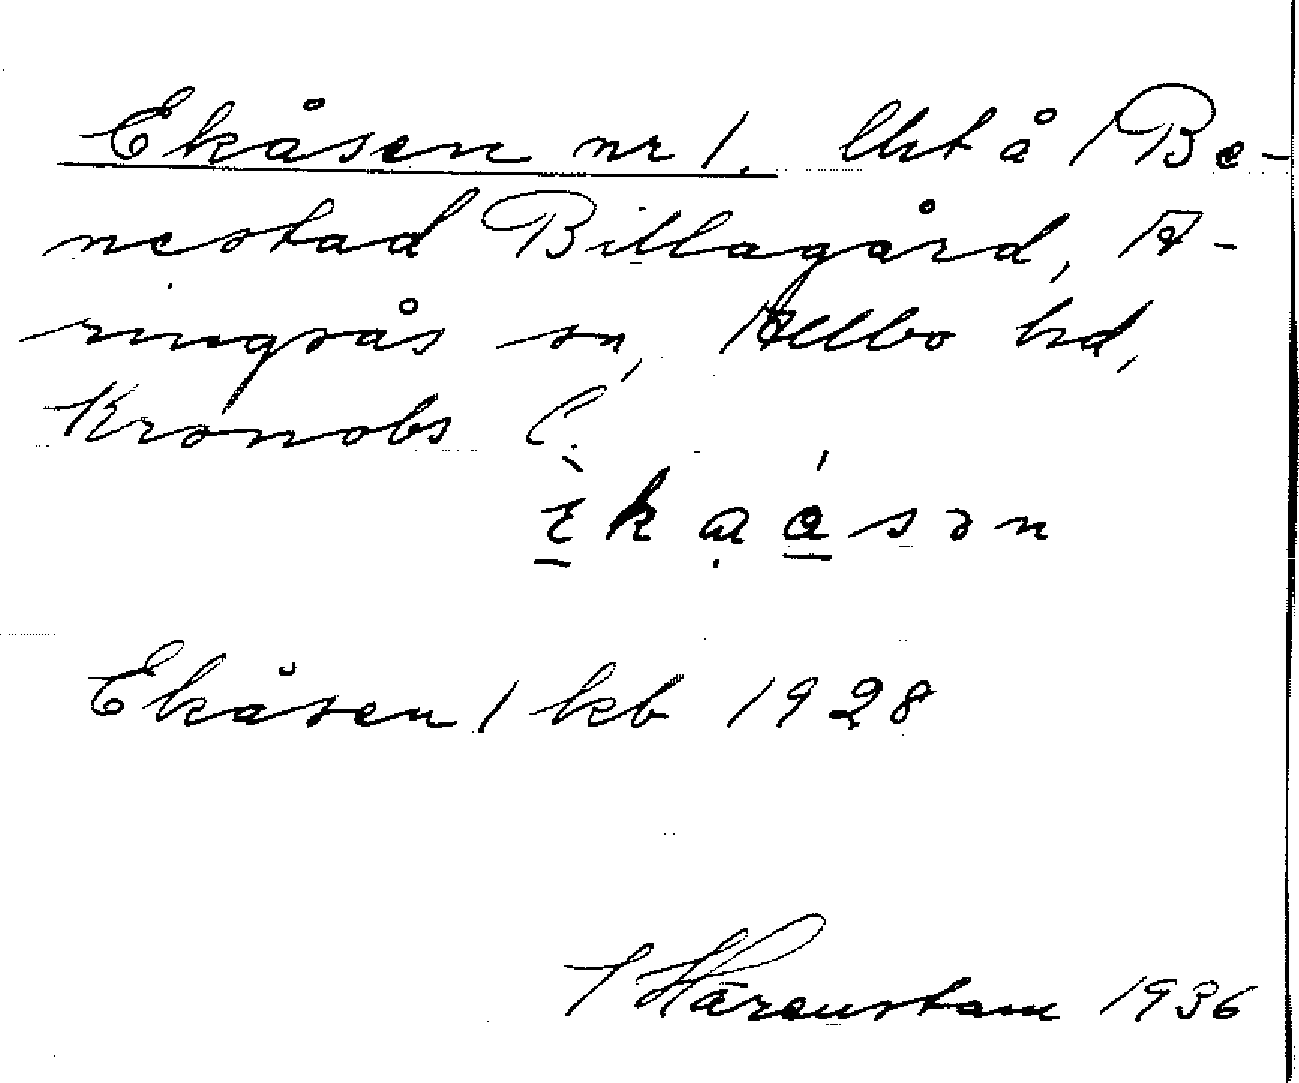 Ekåsen nr 1. Uht å 1 Be-
nestad Billagård, A-
ringsås sn, Allbo hd,
Kronobs l.
ɛ̀kaásən
Ekåsen 1 kb 1928
T Härenstam 1936